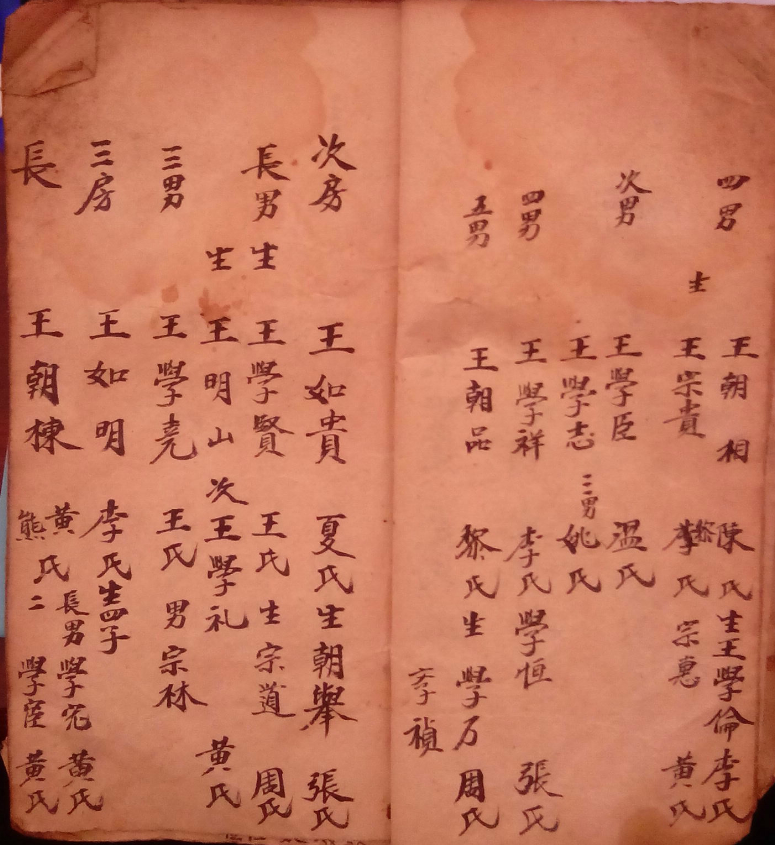 四男 王朝相 陳氏生王學倫李氏
生 王宗貴 黎李氏 宗惠 黃氏
次男 王學臣 溫氏
王學志 三男 姚氏
四男 王學祥 李氏 學恒 張氏
五男 王朝品 黎氏生學万周氏
李禎
次房 王如貴 夏氏生朝舉 張氏
長男生 王學賢 王氏生宗道 周氏
生 王明山 次王學礼 黃氏
三男 王學堯 王氏男宗林
三房 王如明 李氏生四子
長 王朝棟 黃熊氏二
長男學宪黃氏
學宦黃氏